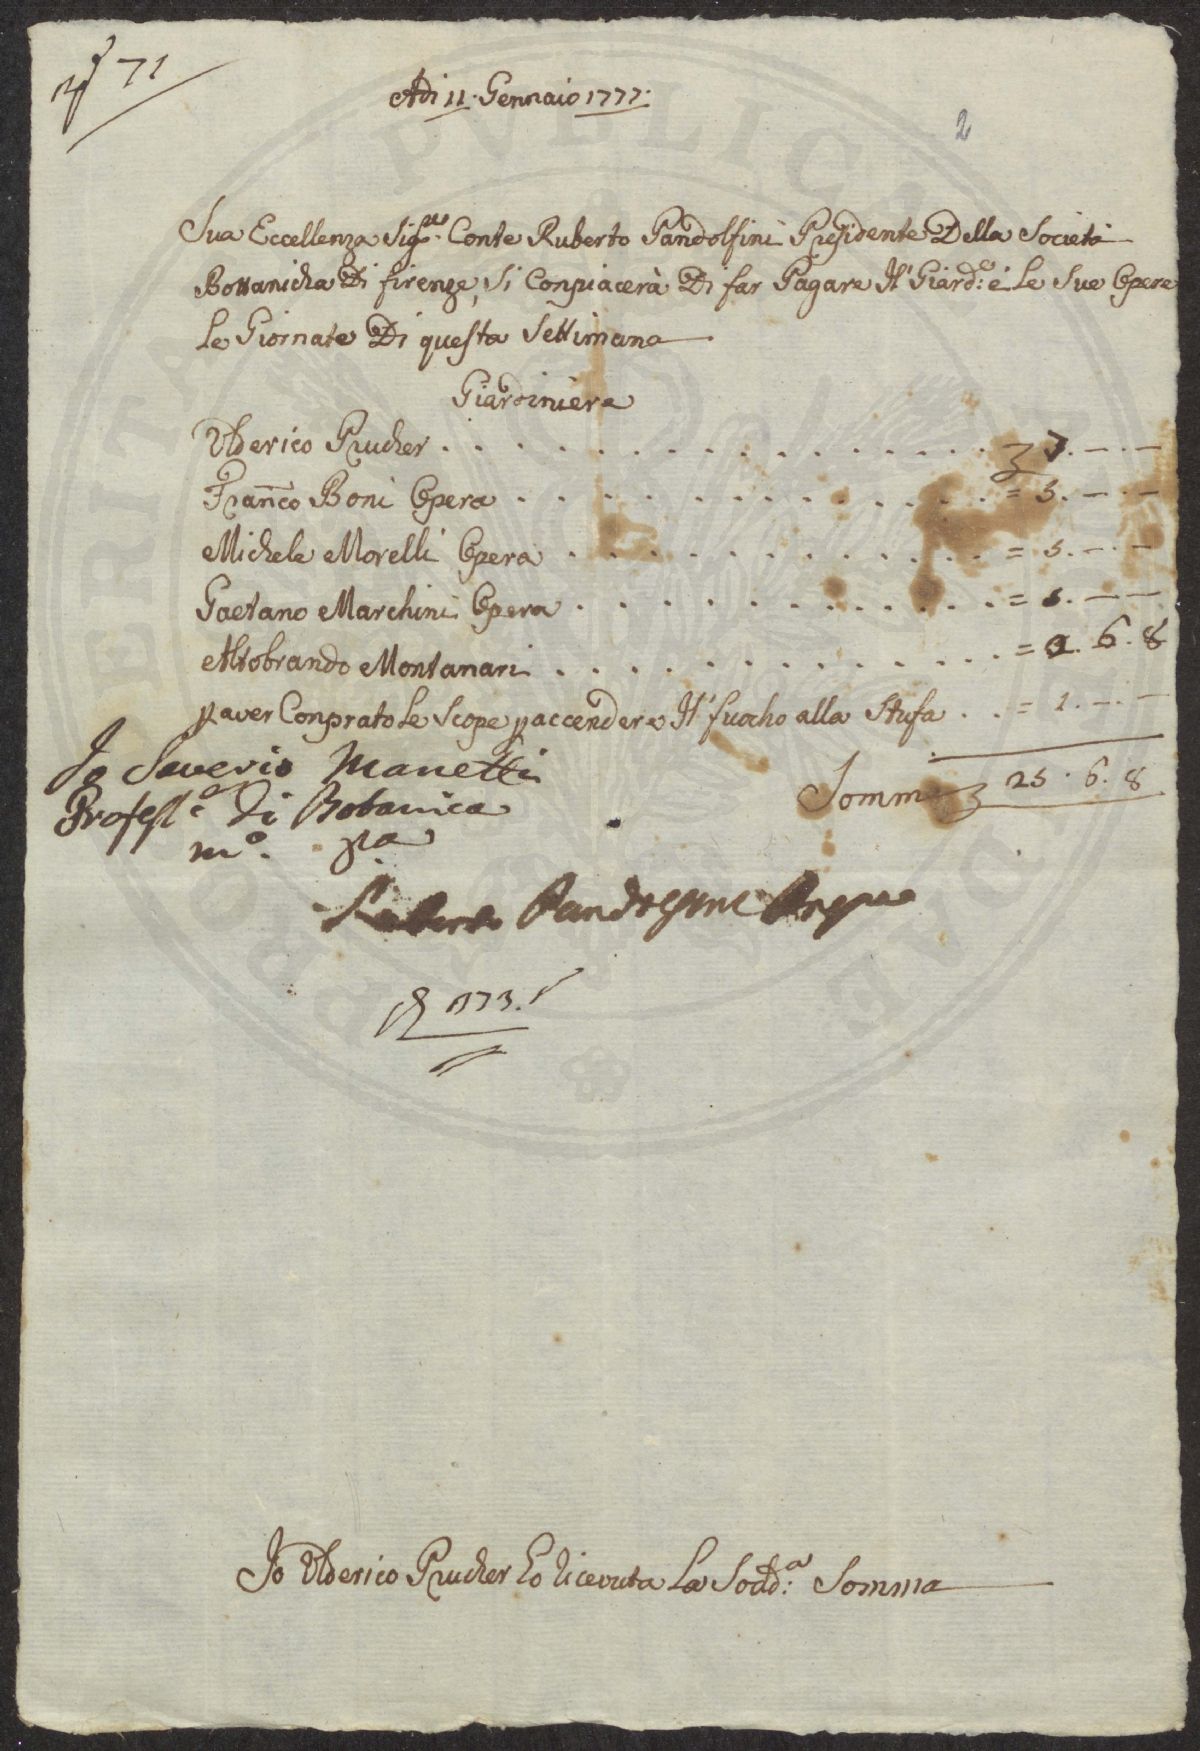 71
Adi 11. Gennaio 1777.
2
Sua Eccellenza Sig.re Conte Ruberto Pandolfini Presidente Della Società
Bottanicha Di firenze, Si Conpiacerà Di far Pagare Il Giard.e e Le Sue Opere
Le Giornate Di questa Settimana
Giardiniere
Ulderico Prucher . . . . . . . . . . . . . . . . . 7. — . —
Fran.co Boni Opera . . . . . . . . . . . . . . . = 5. — . —
Michele Morelli Opera . . . . . . . . . . . . . = 5. — . —
Gaetano Marchini Opera . . . . . . . . . . . . = 5. — . —
Aldobrando Montanari . . . . . . . . . . . . . = 2. 6. 8
p aver Conprato Le Scope p accendere Il fuocho alla Stufa . . = 1. — . —
Somma 25. 6. 8
Io Saverio Manetti
Profess.e di Botanica
m.o pa
Ruberto Pandolfini
173.
Io Ulderico Prucher ho ricevuta La Sodd.a Somma
PVBLICAE